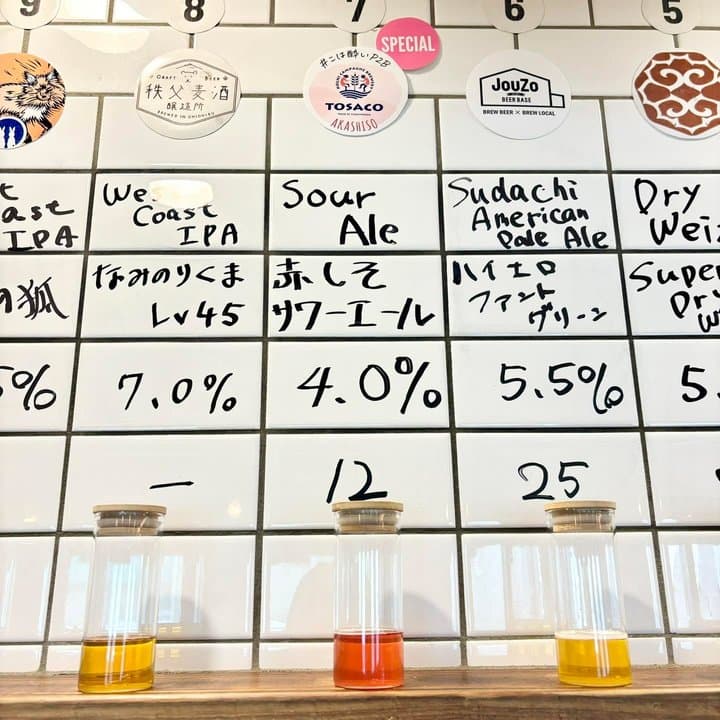 9
8
7
6
5
SPECIAL
CRAFT BEER
秩父麦酒
醸造所
BREWED IN CHICHIBU
#こは酔いP2B
TOSACO
AKASHISO
JouZo
BEER BASE
BREW BEER × BREW LOCAL
t
oast
IPA
We
Coast
IPA
Sour
Ale
Sudachi
American
Pale Ale
Dry
Weiz
の狐
なみのりくま
Lv45
赤しそ
サワーエール
ハイエロ
ファント
グリーン
Super
Dry
W
5%
7.0%
4.0%
5.5%
5.
ー
12
25